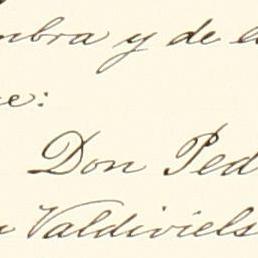 mbra y de l
e:
Don Ped
Valdiviels